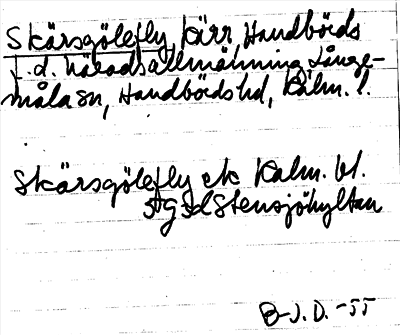 Skärsgölefly kärr, Handbörds
f.d. häradsallmänning Långe-
måla sn, Handbörds hd, Kalm. l.
Skärsgölefly ek Kalm. bl.
5g5d Stensjöhyltan
B-J.D. -55